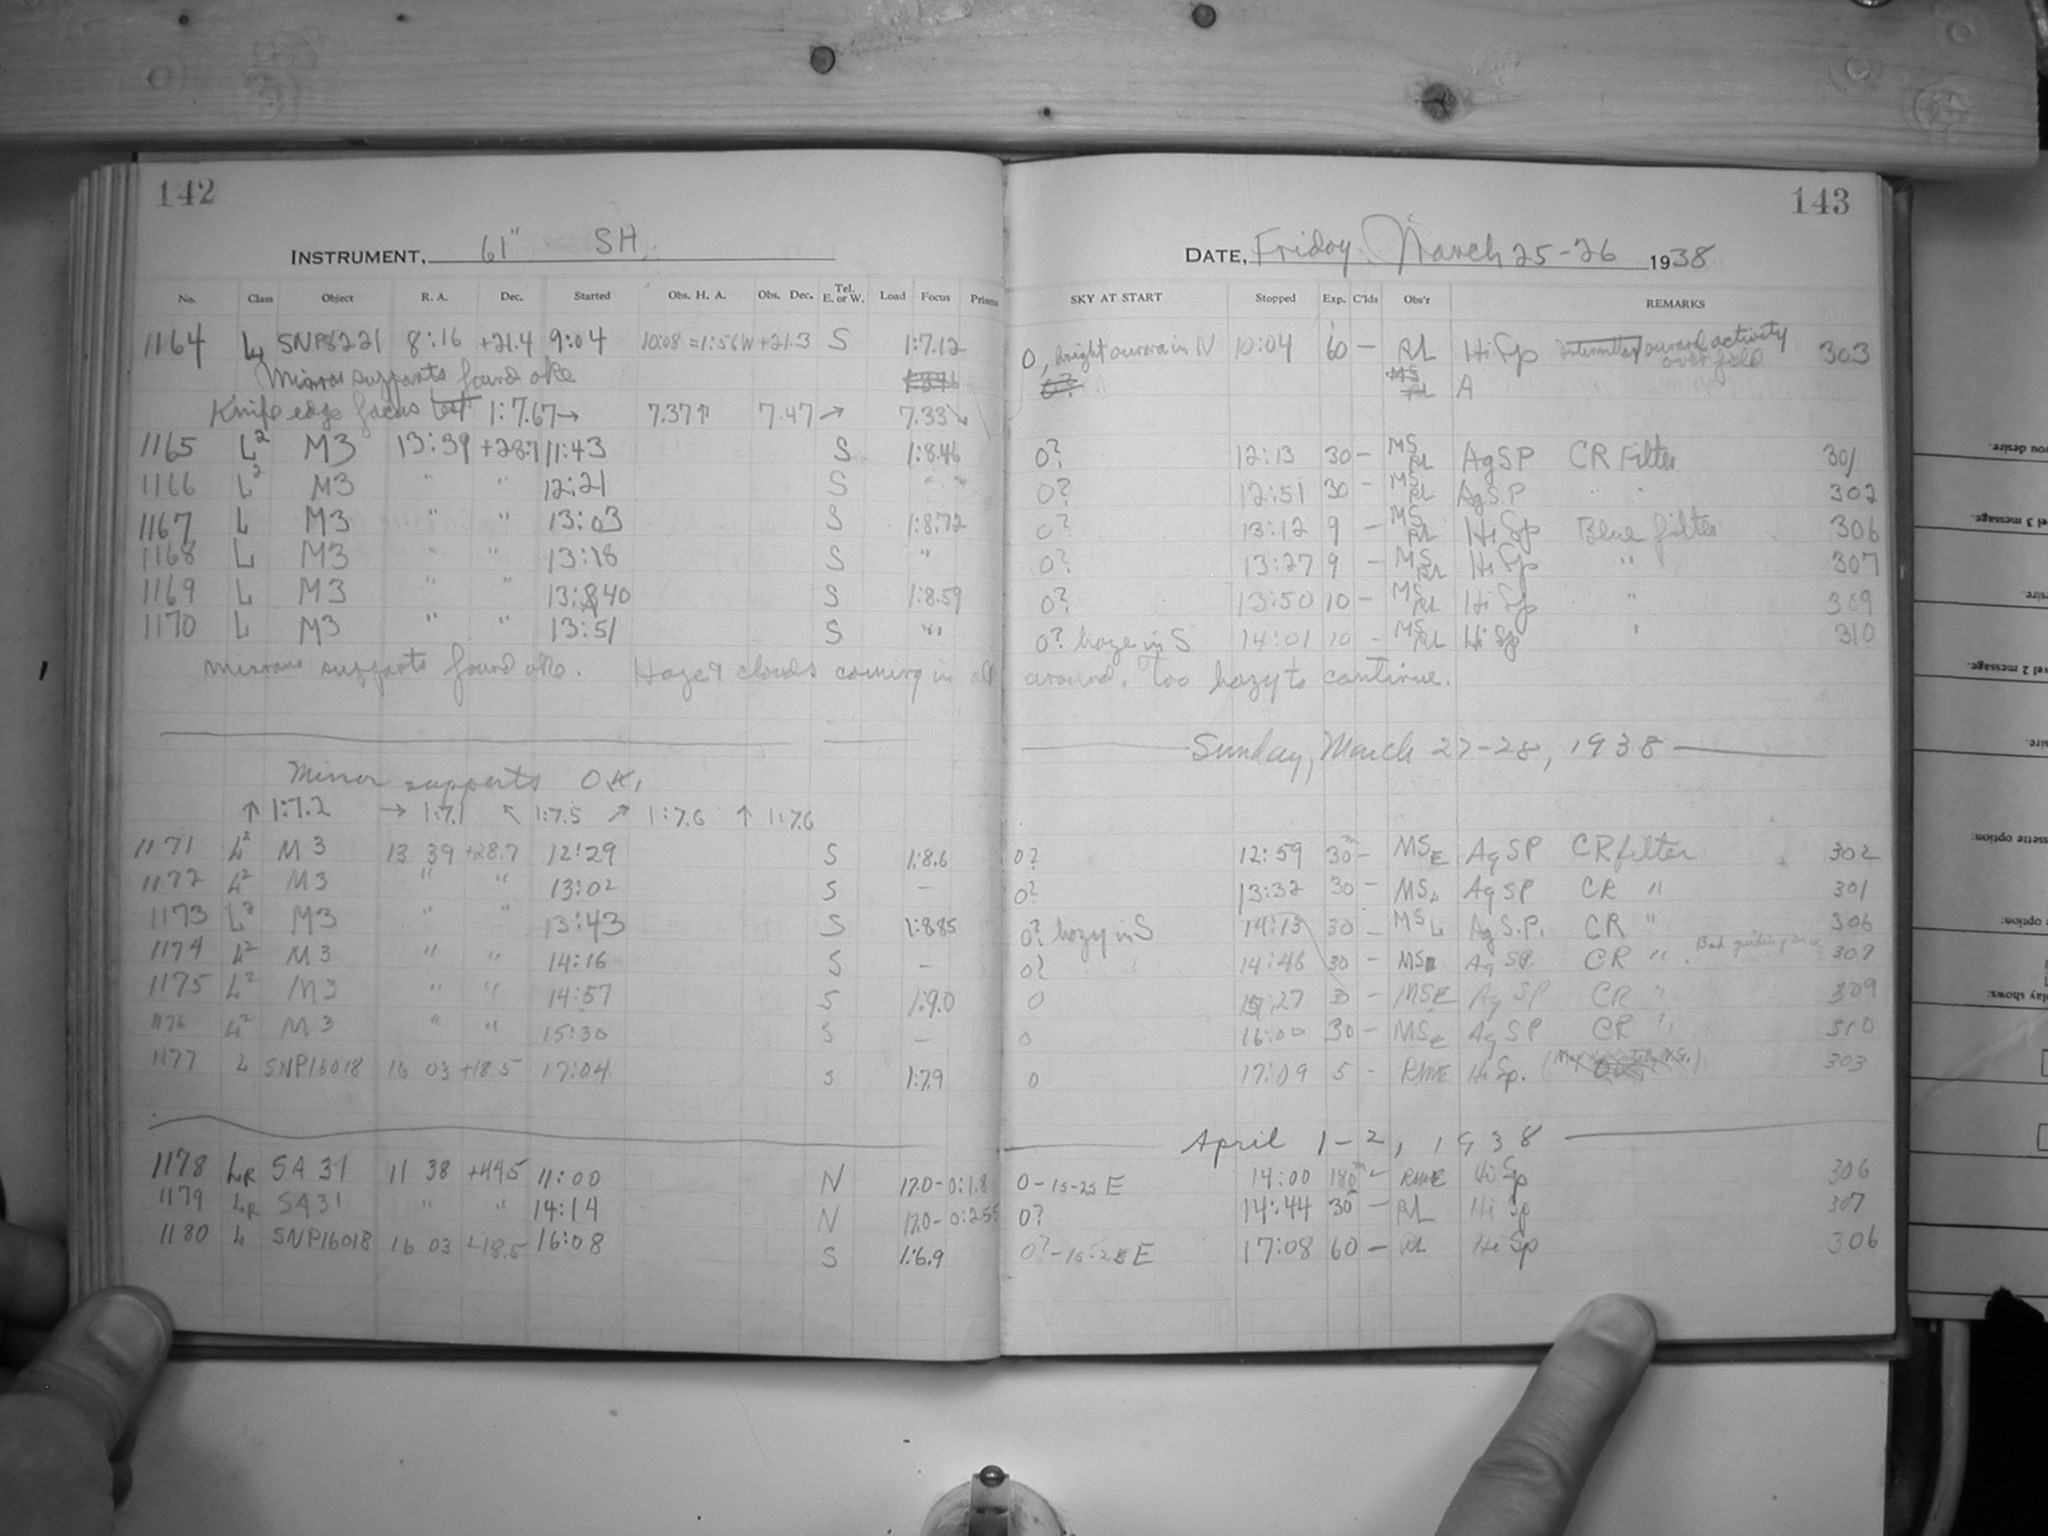 142
INSTRUMENT, 61" SH.
No. Class Object R. A. Dec. Started Obs. H. A. Obs. Dec. Tel. E. or W. Load Focus Prisms
1164 SNP8221 8:16 +21.4 9:04 10:08 = 1:56W +21.3 S 1:7.12
Mirror supports found oke
Knife edge focus test 1:7.67→ 7.37↑ 7.47↗ 7.33↘
1165 L² M3 13:39 +28.7 11:43 S 1:8.46
1166 L² M3 " " 12:21 S " "
1167 L M3 " " 13:03 S 1:8.72
1168 L M3 " " 13:18 S "
1169 L M3 " " 13:40 S 1:8.59
1170 L M3 " " 13:51 S "
Mirror supports found oke. Haze & clouds coming in all
Mirror supports O.K.
↑ 1:7.2 → 1:7.1 ↖ 1:7.5 ↗ 1:7.6 ↑ 1:7.6
1171 L² M3 13 39 +28.7 12:29 S 1:8.6
1172 L² M3 " " 13:02 S –
1173 L² M3 " " 13:43 S 1:8.85
1174 L² M3 " " 14:16 S –
1175 L² M3 " " 14:57 S 1:9.0
1176 L² M3 " " 15:30 S –
1177 L SNP16018 16 03 +18.5 17:04 S 1:7.9
1178 LR SA 31 11 38 +44.5 11:00 N 17.0-0:1.8
1179 LR SA31 " " 14:14 N 17.0-0:2.55
1180 L SNP16018 16 03 +18.5 16:08 S 1:6.9
143
DATE, Friday March 25-26 1938
SKY AT START Stopped Exp. C'lds Obs'r REMARKS
0, bright aurora in N 10:04 60 – RL Hi Sp auroral activity over field 303
A
0? 12:13 30 – MS RL Ag SP CR Filter 301
0? 12:51 30 – MS RL Ag S.P " " 302
0? 13:12 9 – MS RL Hi Sp Blue filter 306
0? 13:27 9 – MS RL Hi Sp " 307
0? 13:50 10 – MS RL Hi Sp " 309
0? haze in S 14:01 10 – MS RL Hi Sp " 310
around. too hazy to continue.
Sunday, March 27-28, 1938
0? 12:59 30m – MSE Ag SP CR filter 302
0? 13:32 30 – MS Ag SP CR " 301
0? hazy in S 14:13 30 – MS Ag S.P. CR " 306
0? 14:46 30 – MS Ag SP CR " Bad guiding 307
0 15:27 30 – MSE Ag SP CR " 309
0 16:00 30 – MSE Ag SP CR " 310
0 17:09 5 – RME Hi Sp. 303
April 1-2, 1938
0-15-25 E 14:00 180m – RME Hi Sp 306
0? 14:44 30 – RL Hi Sp 307
0?-15-25 E 17:08 60 – RL Hi Sp 306
you desire.
el 3 message.
sire.
vel 2 message.
sire.
ssette option:
option:
play shows: